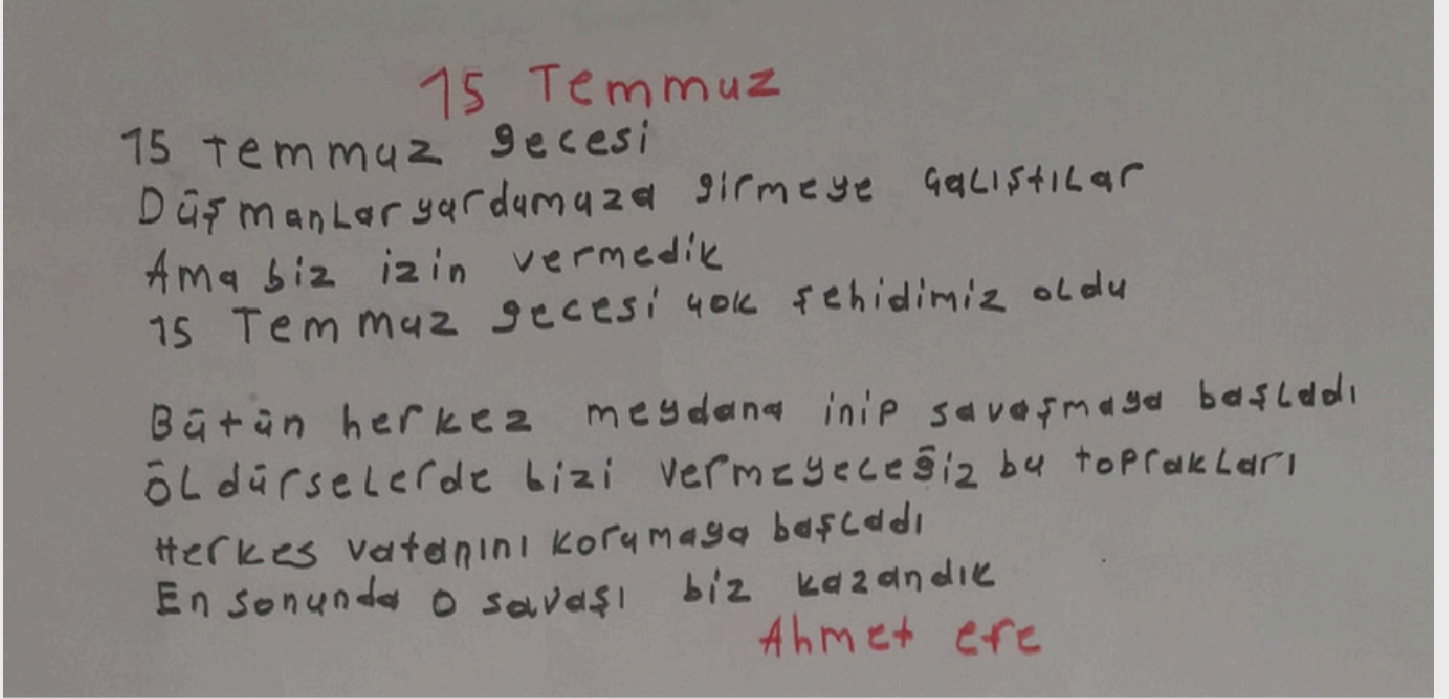 15 Temmuz
15 temmuz gecesi
Düşmanlar yurdumuza girmeye çalıştılar
Ama biz izin vermedik
15 Temmuz gecesi çok şehidimiz oldu
Bütün herkez meydana inip savaşmaya başladı
öldürselerde bizi vermeyeceğiz bu toprakları
Herkes vatanını korumaya başladı
En sonunda o savaşı biz kazandık
Ahmet efe